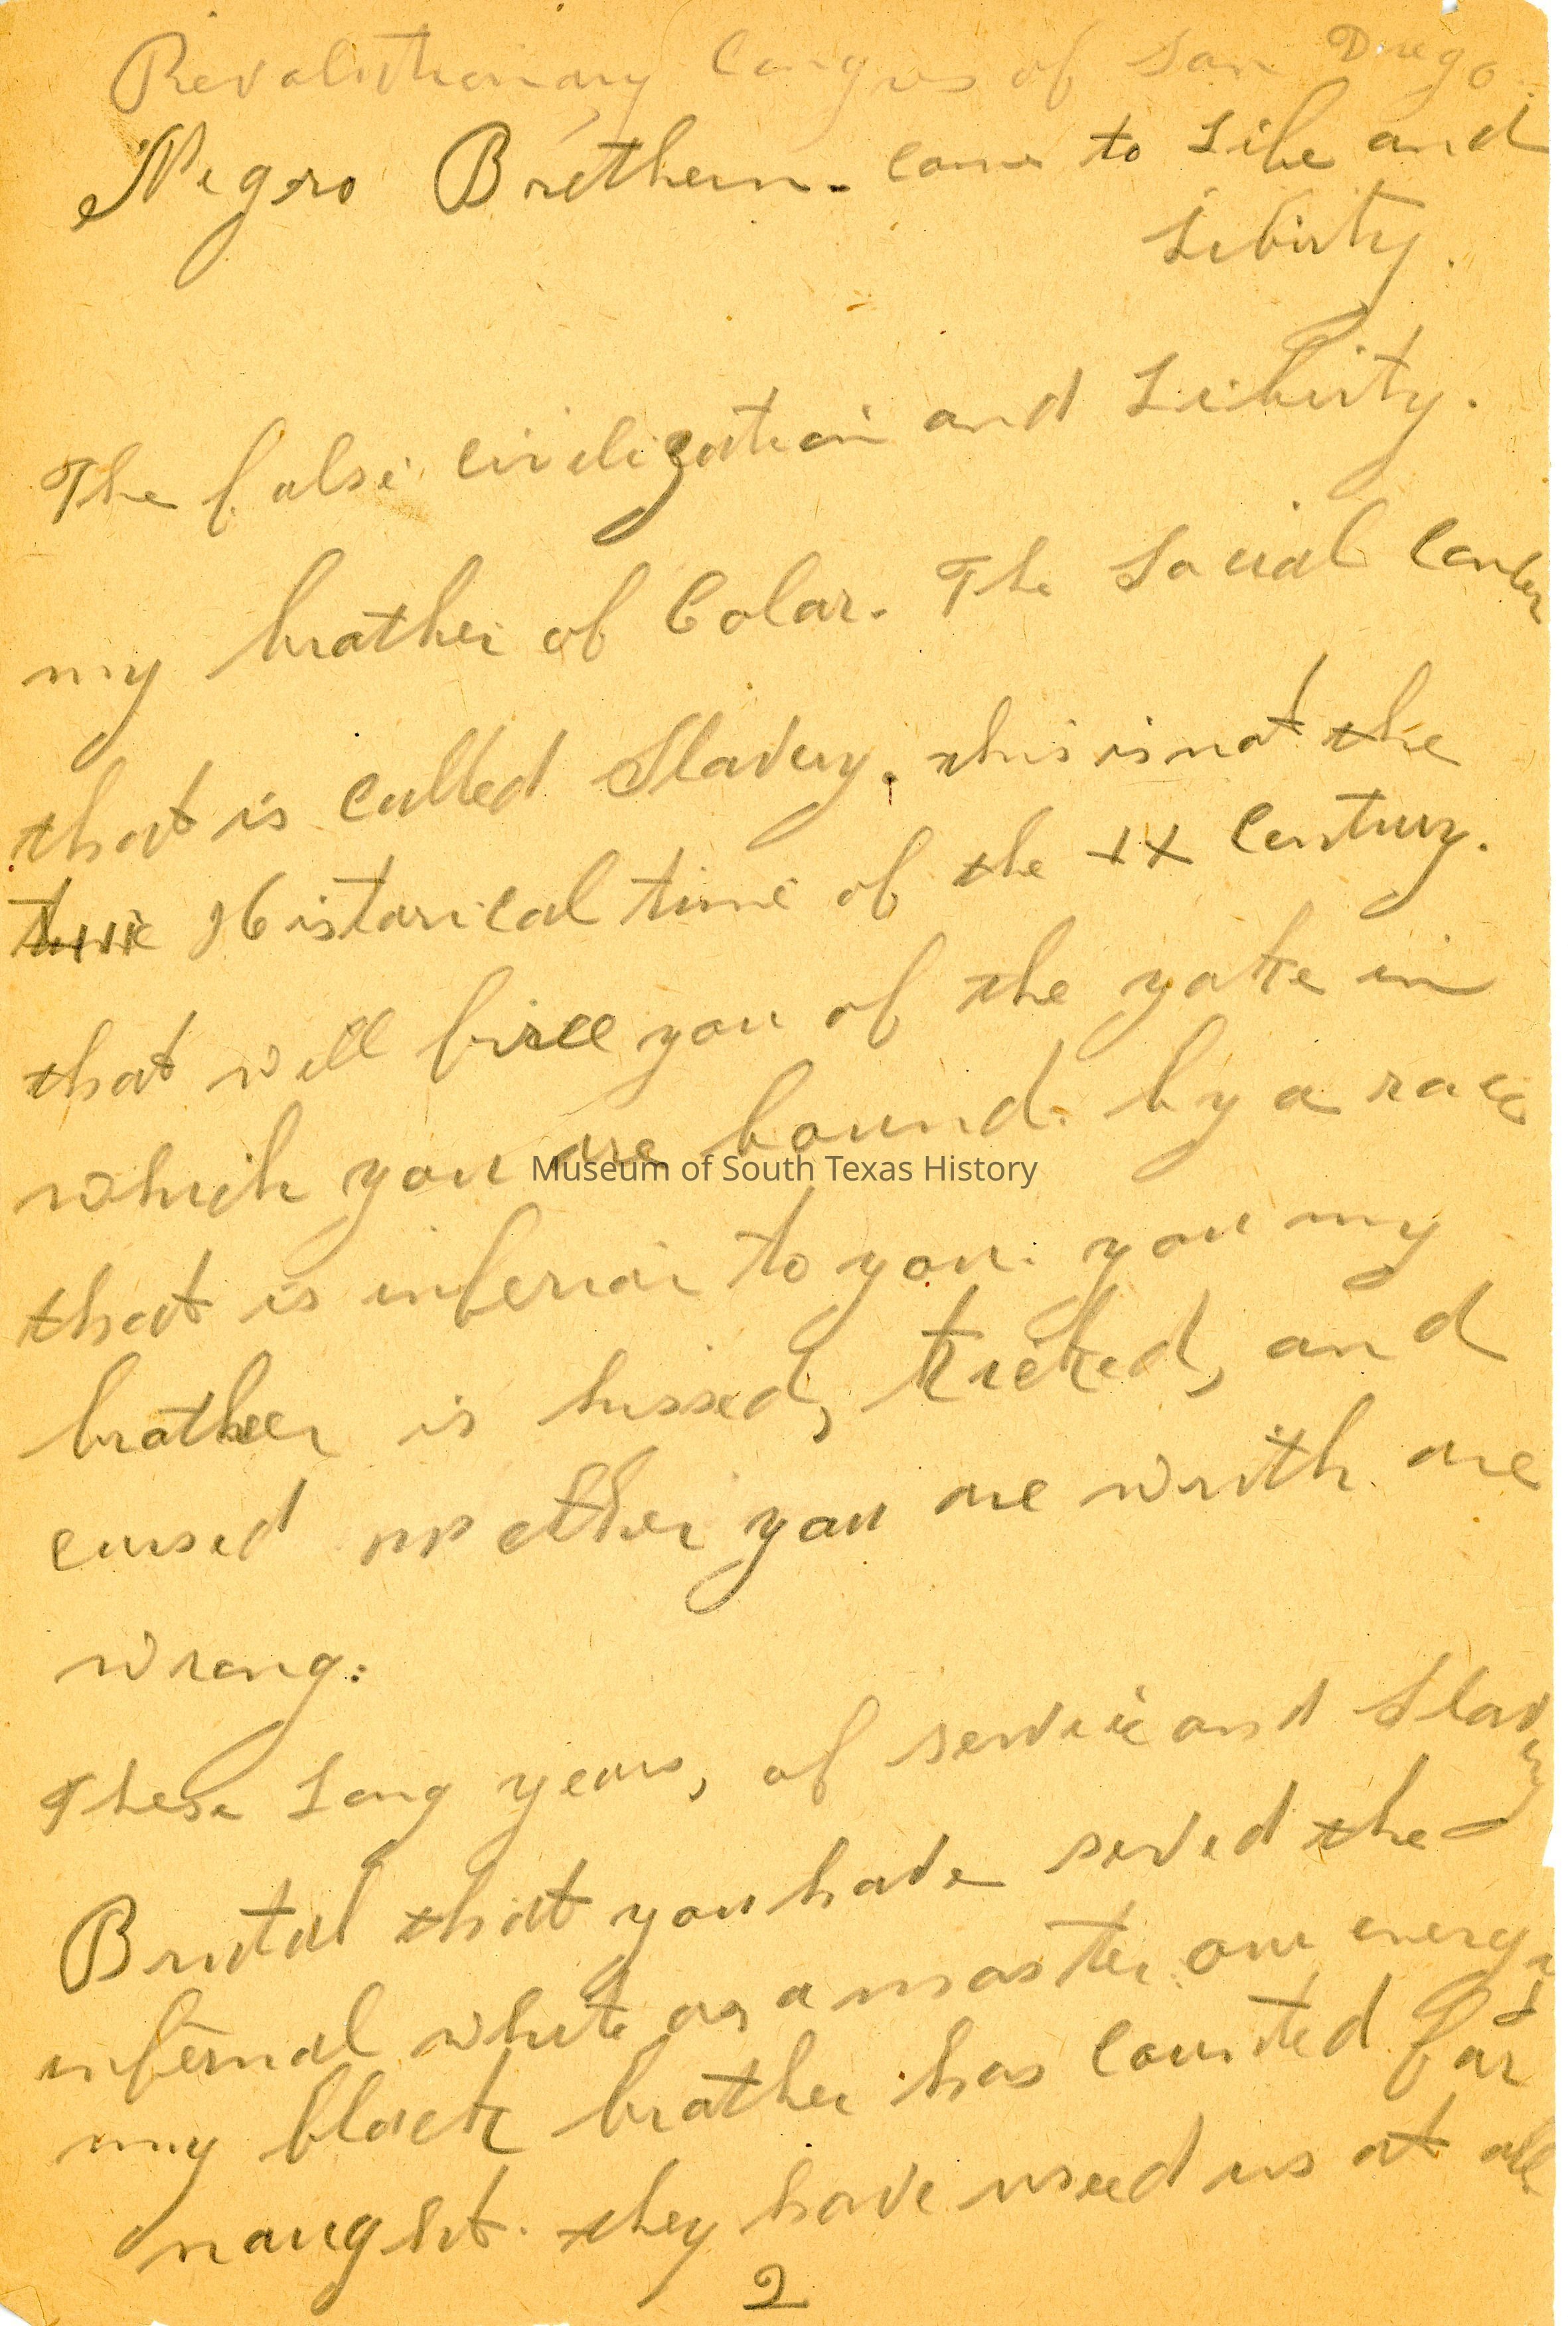 Revolutionary Congres of San Diego.
Negro Brethern. come to Life and
Liberty.
The false civilization and Liberty.
my brother of Color. The Social Cancer
that is called Slavery. this is not the
Historical time of the XX Century.
that will free you of the yoke in
which you are bound. by a race
Museum of South Texas History
that is inferior to you. you my
brother is hissed, kicked, and
cursed whether you are with are
wrong:
These Long years, of service and Slavery
Brutal that you have served the
infernal white as a master our energy
my black brother has counted for
naught. they have used us at all
2